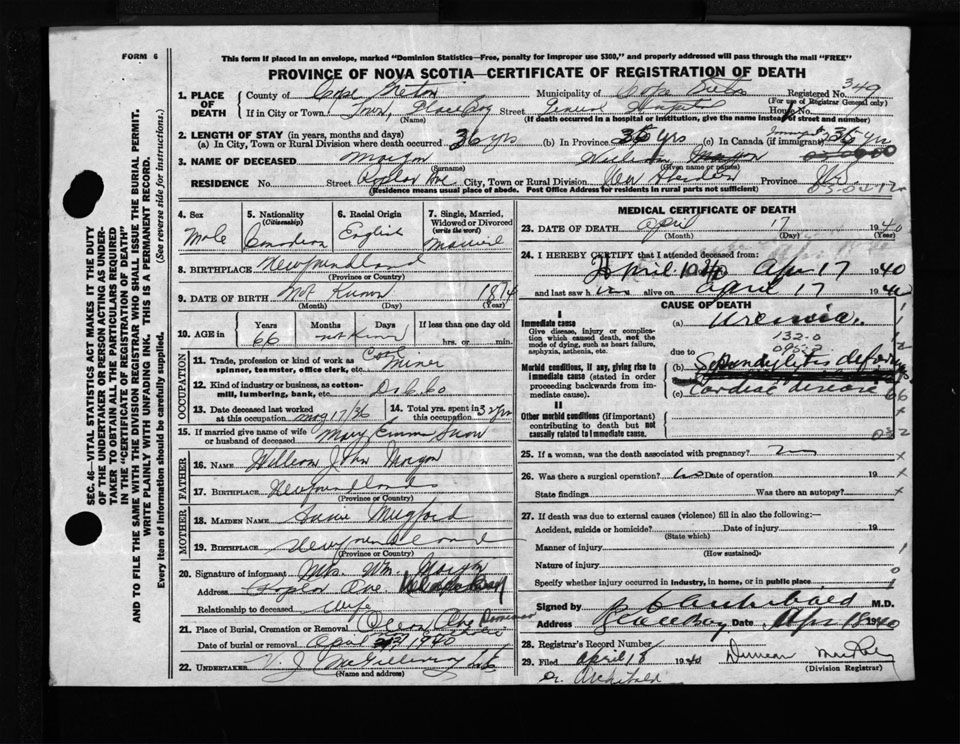 FORM 6
This form if placed in an envelope, marked "Dominion Statistics—Free, penalty for improper use $300," and properly addressed will pass through the mail "FREE"
PROVINCE OF NOVA SCOTIA—CERTIFICATE OF REGISTRATION OF DEATH
SEC. 46—VITAL STATISTICS ACT MAKES IT THE DUTY
OF THE UNDERTAKER OR PERSON ACTING AS UNDER-
TAKER TO OBTAIN ALL THE PARTICULARS REQUIRED
IN THE "CERTIFICATE OF REGISTRATION OF DEATH"
AND TO FILE THE SAME WITH THE DIVISION REGISTRAR WHO SHALL ISSUE THE BURIAL PERMIT.
WRITE PLAINLY WITH UNFADING INK. THIS IS A PERMANENT RECORD.
Every item of Information should be carefully supplied. (See reverse side for instructions.)
1. PLACE OF DEATH County of Cape Breton Municipality of Cape Breton Registered No. 349
(For use of Registrar General only)
If in City or Town Town, Glace Bay Street General Hospital House No.
(Name) (If death occurred in a hospital or institution, give the name instead of street and number)
2. LENGTH OF STAY (in years, months and days)
(a) In City, Town or Rural Division where death occurred 36 yrs (b) In Province 36 yrs (c) In Canada (if immigrant) 36 yrs
3. NAME OF DECEASED William
(Surname) (Given name or names)
RESIDENCE No. Street Ave City, Town or Rural Division Province N.S.
(Residence means usual place of abode. Post Office Address for Residents in rural parts not sufficient)
4. Sex Male
5. Nationality (Citizenship) Canadian
6. Racial Origin English
7. Single, Married, Widowed or Divorced (write the word) Married
8. BIRTHPLACE Newfoundland
(Province or Country)
9. DATE OF BIRTH Not Known 1874
(Month) (Day) (Year)
10. AGE in Years 66 Months not known Days If less than one day old hrs. or min.
OCCUPATION
11. Trade, profession or kind of work as spinner, teamster, office clerk, etc. Coal Miner
12. Kind of industry or business, as cotton-mill, lumbering, bank, etc.
13. Date deceased last worked at this occupation
14. Total yrs. spent in this occupation 32 yrs
15. If married give name of wife or husband of deceased Mary Emma Snow
FATHER
16. NAME William John
17. BIRTHPLACE Newfoundland
(Province or Country)
MOTHER
18. MAIDEN NAME Mugford
19. BIRTHPLACE Newfoundland
(Province or Country)
20. Signature of informant Mrs. Wm.
Address Ave.
Relationship to deceased Wife
21. Place of Burial, Cremation or Removal
Date of burial or removal 1940
22. UNDERTAKER V. J. McGillivray
(Name and address)
MEDICAL CERTIFICATE OF DEATH
23. DATE OF DEATH April 17 1940
(Month) (Day) (Year)
24. I HEREBY CERTIFY that I attended deceased from:
Apr 17 1940
and last saw h im alive on April 17 1940
CAUSE OF DEATH
I
Immediate cause (a) Uremia.
Give disease, injury or complication which caused death, not the mode of dying, such as heart failure, asphyxia, asthenia, etc.
132-0
due to
Morbid conditions, if any, giving rise to immediate cause (stated in order proceeding backwards from immediate cause).
(b) Spondylitis deformans
(c) Cardiac disease
II
Other morbid conditions (if important) contributing to death but not causally related to immediate cause.
25. If a woman, was the death associated with pregnancy?
26. Was there a surgical operation? no Date of operation 19
State findings Was there an autopsy?
27. If death was due to external causes (violence) fill in also the following:—
Accident, suicide or homicide? Date of injury 19
(State which)
Manner of injury
(How sustained)
Nature of injury
Specify whether injury occurred in industry, in home, or in public place
Signed by Archibald M.D.
Address Glace Bay Date Apr 18 1940
28. Registrar's Record Number
29. Filed April 18 1940 Duncan
(Division Registrar)
Dr. Archibald